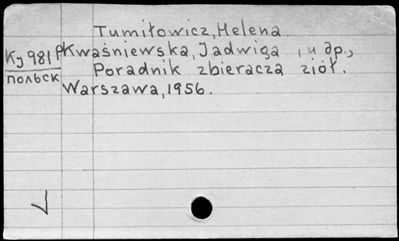 Tumiłowicz, Helena
Kj 981 pKwaśniewska, Jadwiga, и др.,
польск Poradnik zbieracza ziół.
Warszawa, 1956.